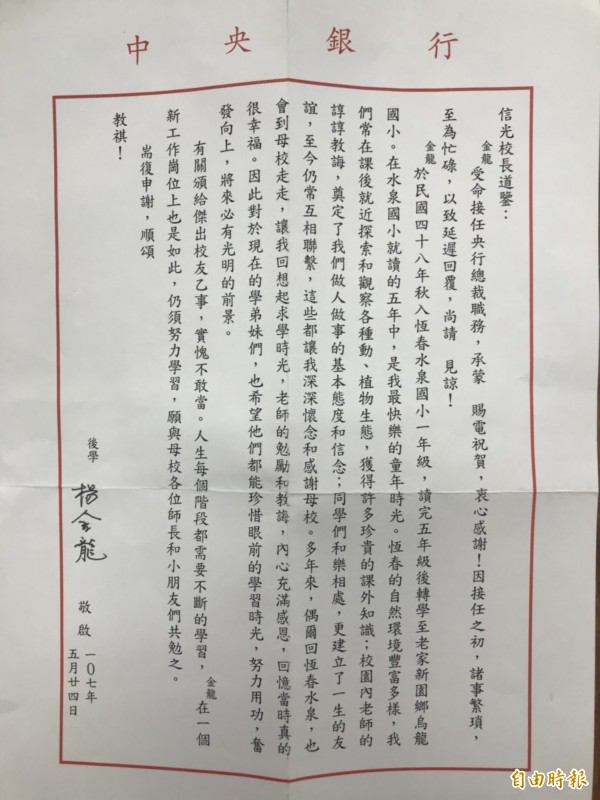 中央銀行
信光校長道鑒：
金龍受命接任央行總裁職務，承蒙　賜電祝賀，衷心感謝！因接任之初，諸事繁瑣，
至為忙碌，以致延遲回覆，尚請　見諒！
金龍於民國四十八年秋入恆春水泉國小一年級，讀完五年級後轉學至老家新園鄉烏龍
國小。在水泉國小就讀的五年中，是我最快樂的童年時光。恆春的自然環境豐富多樣，我
們常在課後就近探索和觀察各種動、植物生態，獲得許多珍貴的課外知識；校園內老師的
諄諄教誨，奠定了我們做人做事的基本態度和信念；同學們和樂相處，更建立了一生的友
誼，至今仍常互相聯繫，這些都讓我深深懷念和感謝母校。多年來，偶爾回恆春水泉，也
會到母校走走，讓我回想起求學時光，老師的勉勵和教誨，內心充滿感恩，回憶當時真的
很幸福。因此對於現在的學弟妹們，也希望他們都能珍惜眼前的學習時光，努力用功，奮
發向上，將來必有光明的前景。
有關頒給傑出校友乙事，實愧不敢當。人生每個階段都需要不斷的學習，金龍在一個
新工作崗位上也是如此，仍須努力學習，願與母校各位師長和小朋友們共勉之。
耑復申謝，順頌
教祺！
後學　楊金龍　敬啟
一０七年
五月廿四日
自由時報